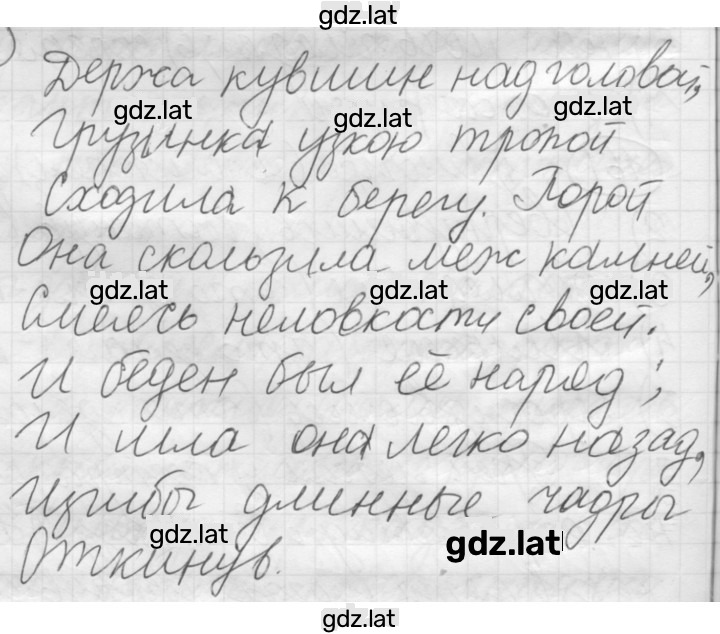 gdz.lat
Держа кувшин над головой,
gdz.lat gdz.lat gdz.lat
Грузинка узкою тропой
Сходила к берегу. Порой
Она скользила меж камней,
gdz.lat gdz.lat gdz.lat
Смеясь неловкости своей.
И беден был её наряд;
И шла она легко назад,
Изгибы длинные чадры
gdz.lat gdz.lat
Откинув.
gdz.lat